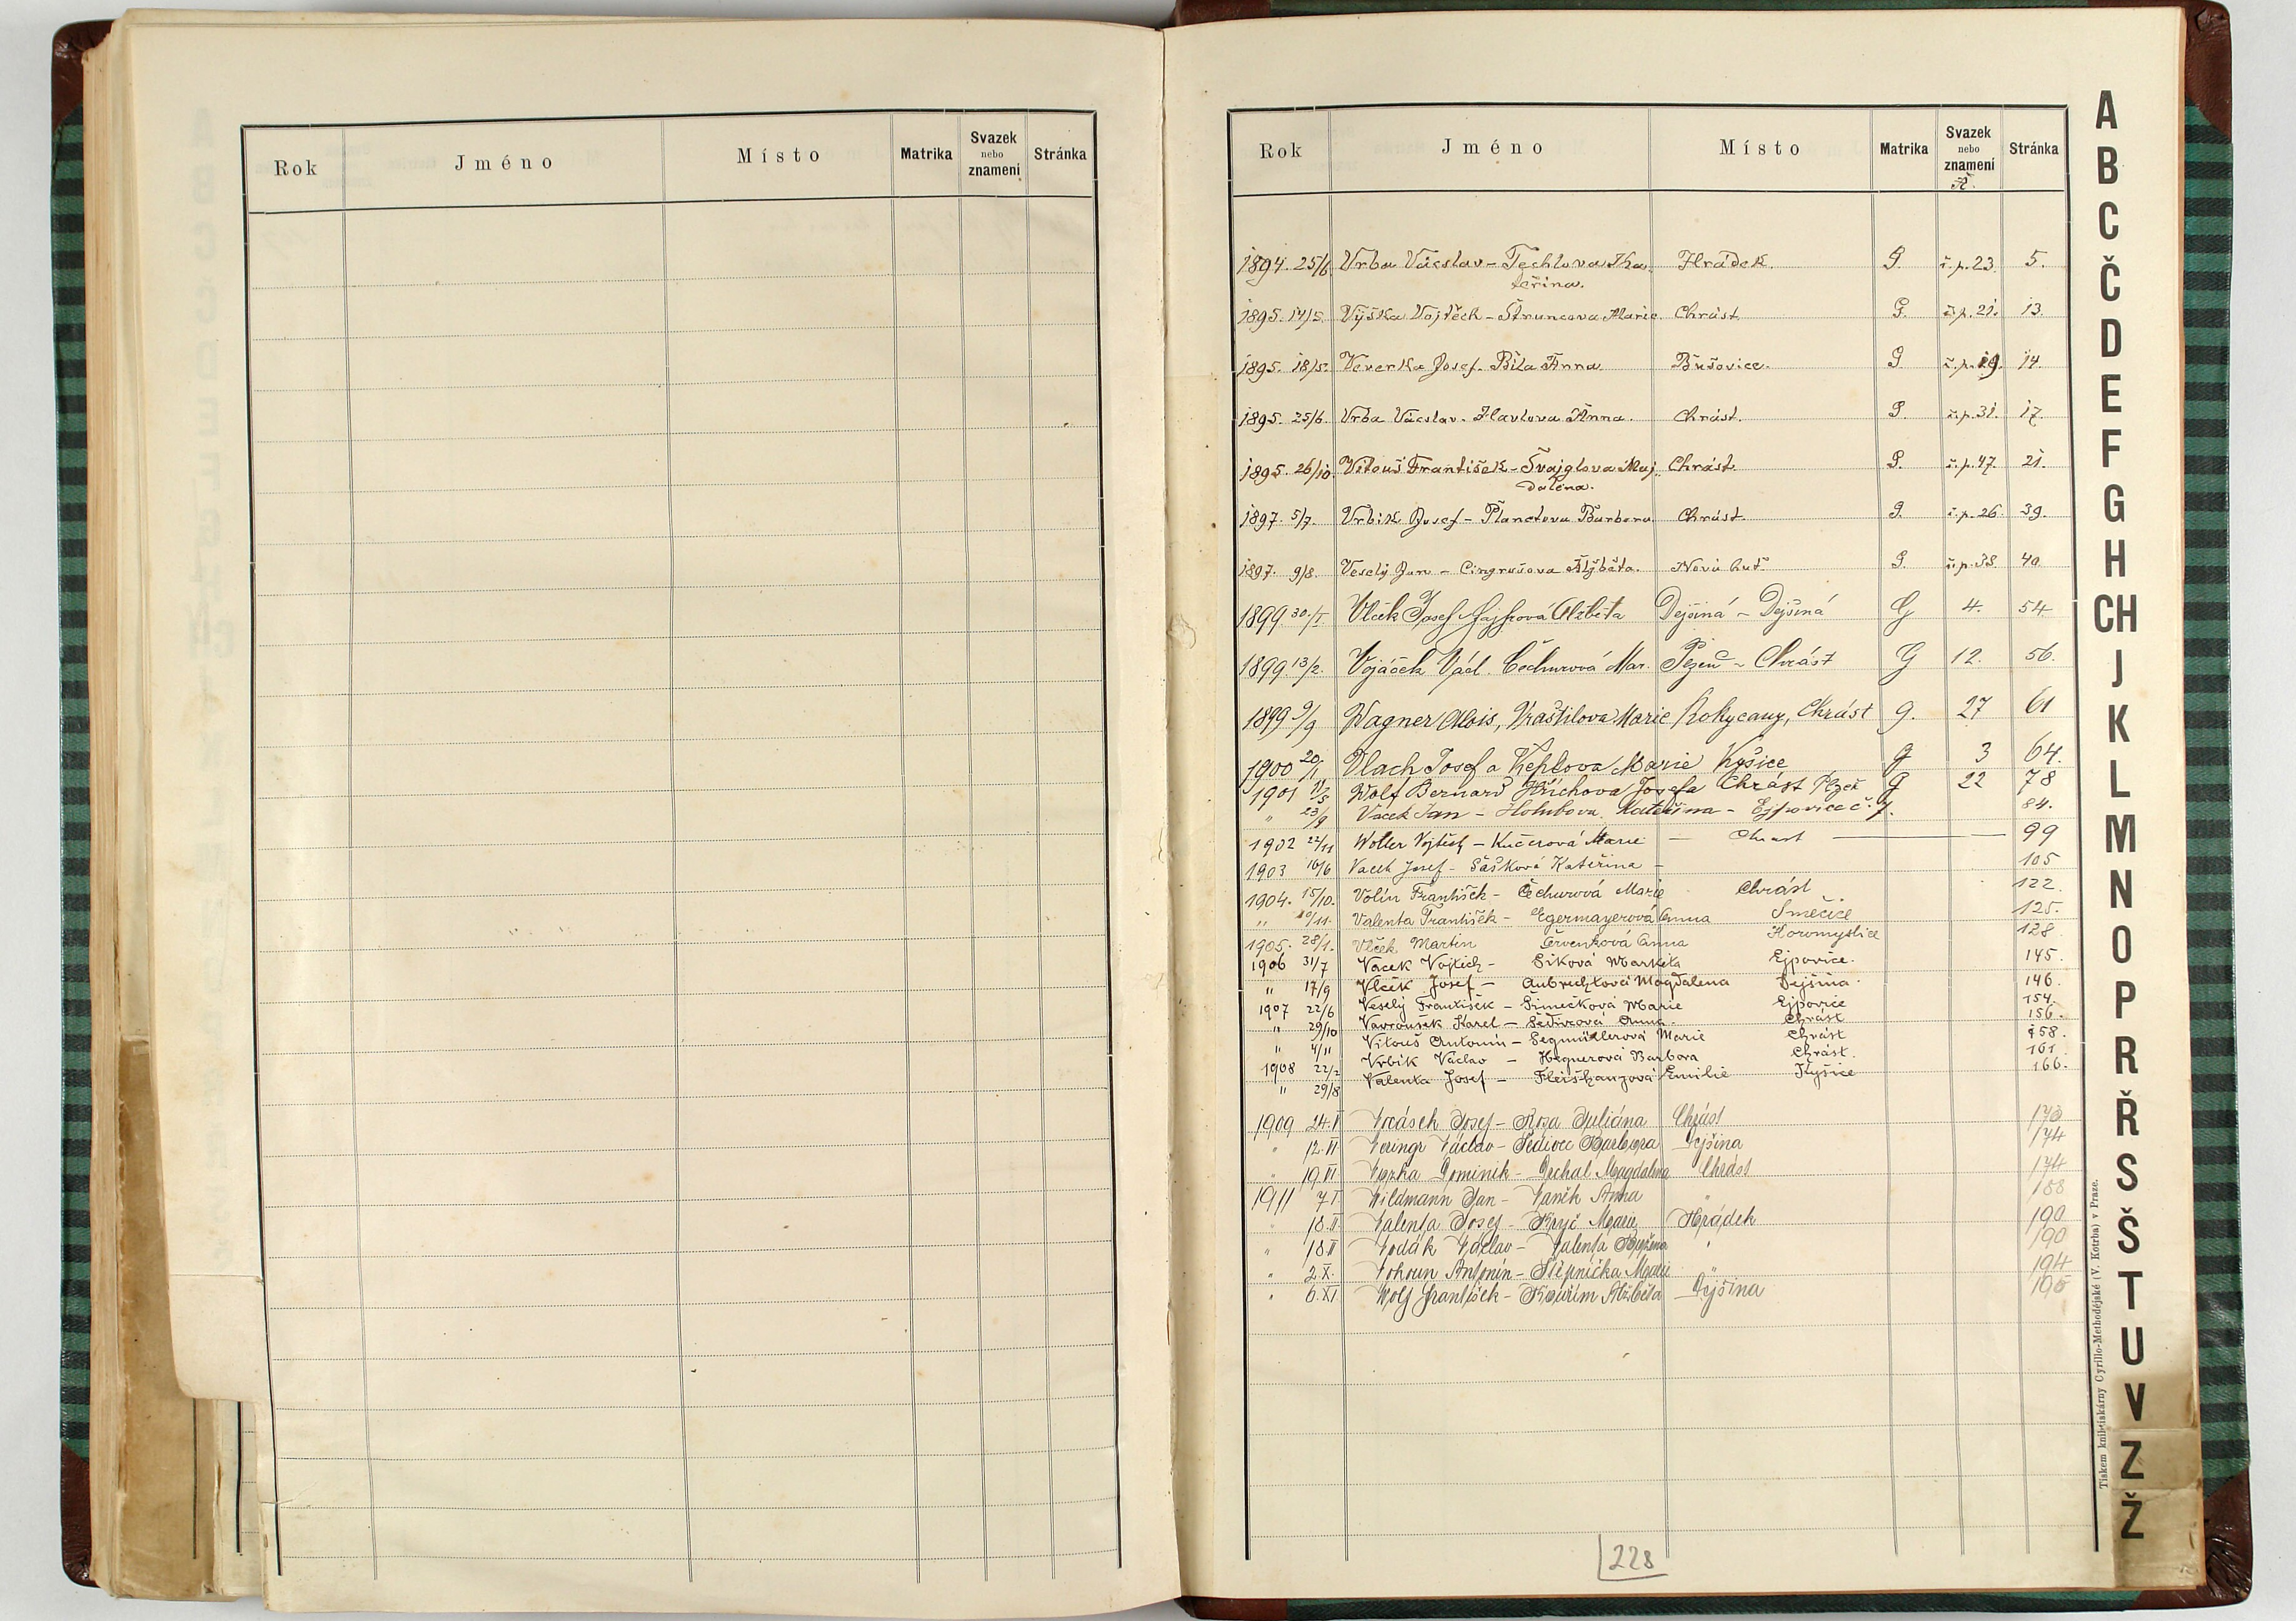 Rok Jméno Místo Matrika Svazek nebo znamení Stránka
Rok Jméno Místo Matrika Svazek nebo znamení Stránka
1894. 25/6 Vrba Václav - Techlova Ka- Hrádek. G. č.p. 23. 5.
teřina.
1895. 14/5. Výška Vojtěch - Štruncova Marie Chrást. G. č.p. 21. 13.
1895. 18/5. Veverka Josef - Bíla Anna Bušovice. G č.p. 19. 14.
1895. 25/6. Vrba Václav - Havlova Anna. Chrást. G. č.p. 31. 17.
1895. 26/10. Vitouš František - Švajglova Maj- Chrást. G. č.p. 47. 21.
dalena.
1897. 5/7. Vrbik Josef - Planetova Barbora Chrást. G. č.p. 26. 39.
1897. 9/8. Veselý Jan - Cingrošova Alžběta. Nová huť G. č.p. 38 40
1899 30./1. Vlček Josef Alžběta Dejšiná - Dejšiná G 4. 54
1899 13/2. Vojáček Václ. Čechurová Mar. Plzeň - Chrást G 12. 56.
1899 9/9 Wagner Alois, Vraštilova Marie Rokycany, Chrást G. 27 61
1900 20/1 Vlach Josef a Keplova Marie Kyšice G 3 64.
1901 11/5 Wolf Bernard Hřichova Josefa Chrást Plzeň G 22 78
" 23/9 Vacek Jan - Holubova Kateřina - Ejpovice č. 7. 84.
1902 22/11 Woller Vojtěch - Kučerová Marie - Chrast 99
1903 16/6 Vacek Josef - Sašková Kateřina - 105
1904. 15/10. Volín František - Čechurová Marie Chrást 122.
" 10/11. Valenta František - Egermayerová Anna Smečice 125.
1905. 28/1. Vlček Martin Červenková Anna Horomyslice 128
1906 31/7 Vacek Vojtěch - Siková Markéta Ejpovice. 145.
" 17/9 Vlček Josef - Aubrechtová Magdalena Dejšina. 146.
1907 22/6 Veselý František - Šimečková Marie Ejpovice 154.
" 29/10 Vavroušek Karel - Šedivcová Anna. Chrást 156.
" 4/11 Vitouš Antonín - Segmüllerová Marie Chrást 158.
1908 22/2 Vrbík Václav - Hegnerová Barbora Chrást. 161.
" 29/8 Valenta Josef - Fleišhanzová Emilie Kyšice 166.
1909 24.I Vocásek Josef - Rosa Juliána Chrást 170
" 12.II Veringr Václav - Šedivec Barbora Dejšina 174
" 19.VI Vopka Dominik - Magdalena Chrást 174
1911 7.I Wildmann Jan - Vaněk Anna " 188
" 18.II Valenta Josef - Kryč Marie Hrádek 190
" 18.II Vodák Václav - Valenta Božena " 190
" 2.X. Vohoun Antonín - Štěpnička Marie " 194
" 6.XI Wolf František - Kouřím Alžběta Dejšina 195
228
A
B
C
Č
D
E
F
G
H
CH
J
K
L
M
N
O
P
R
Ř
S
Š
T
U
V
Z
Ž
Tiskem knihtiskárny Cyrillo-Methodějské (V. Kotrba) v Praze.